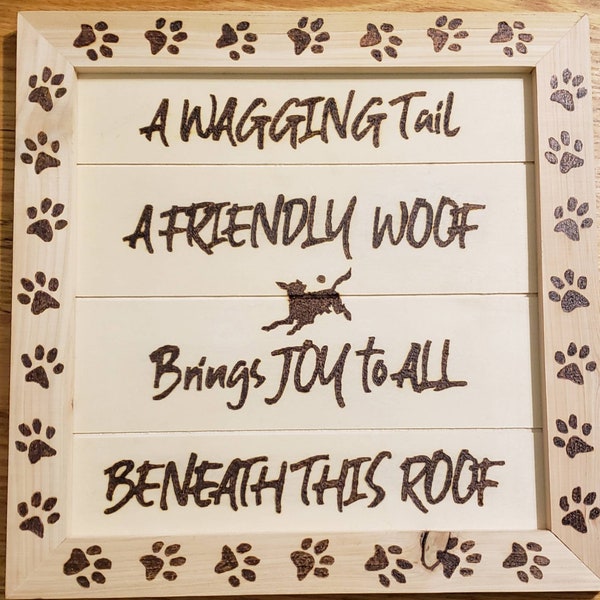 A WAGGING Tail
A FRIENDLY WOOF
Brings JOY to ALL
BENEATH THIS ROOF